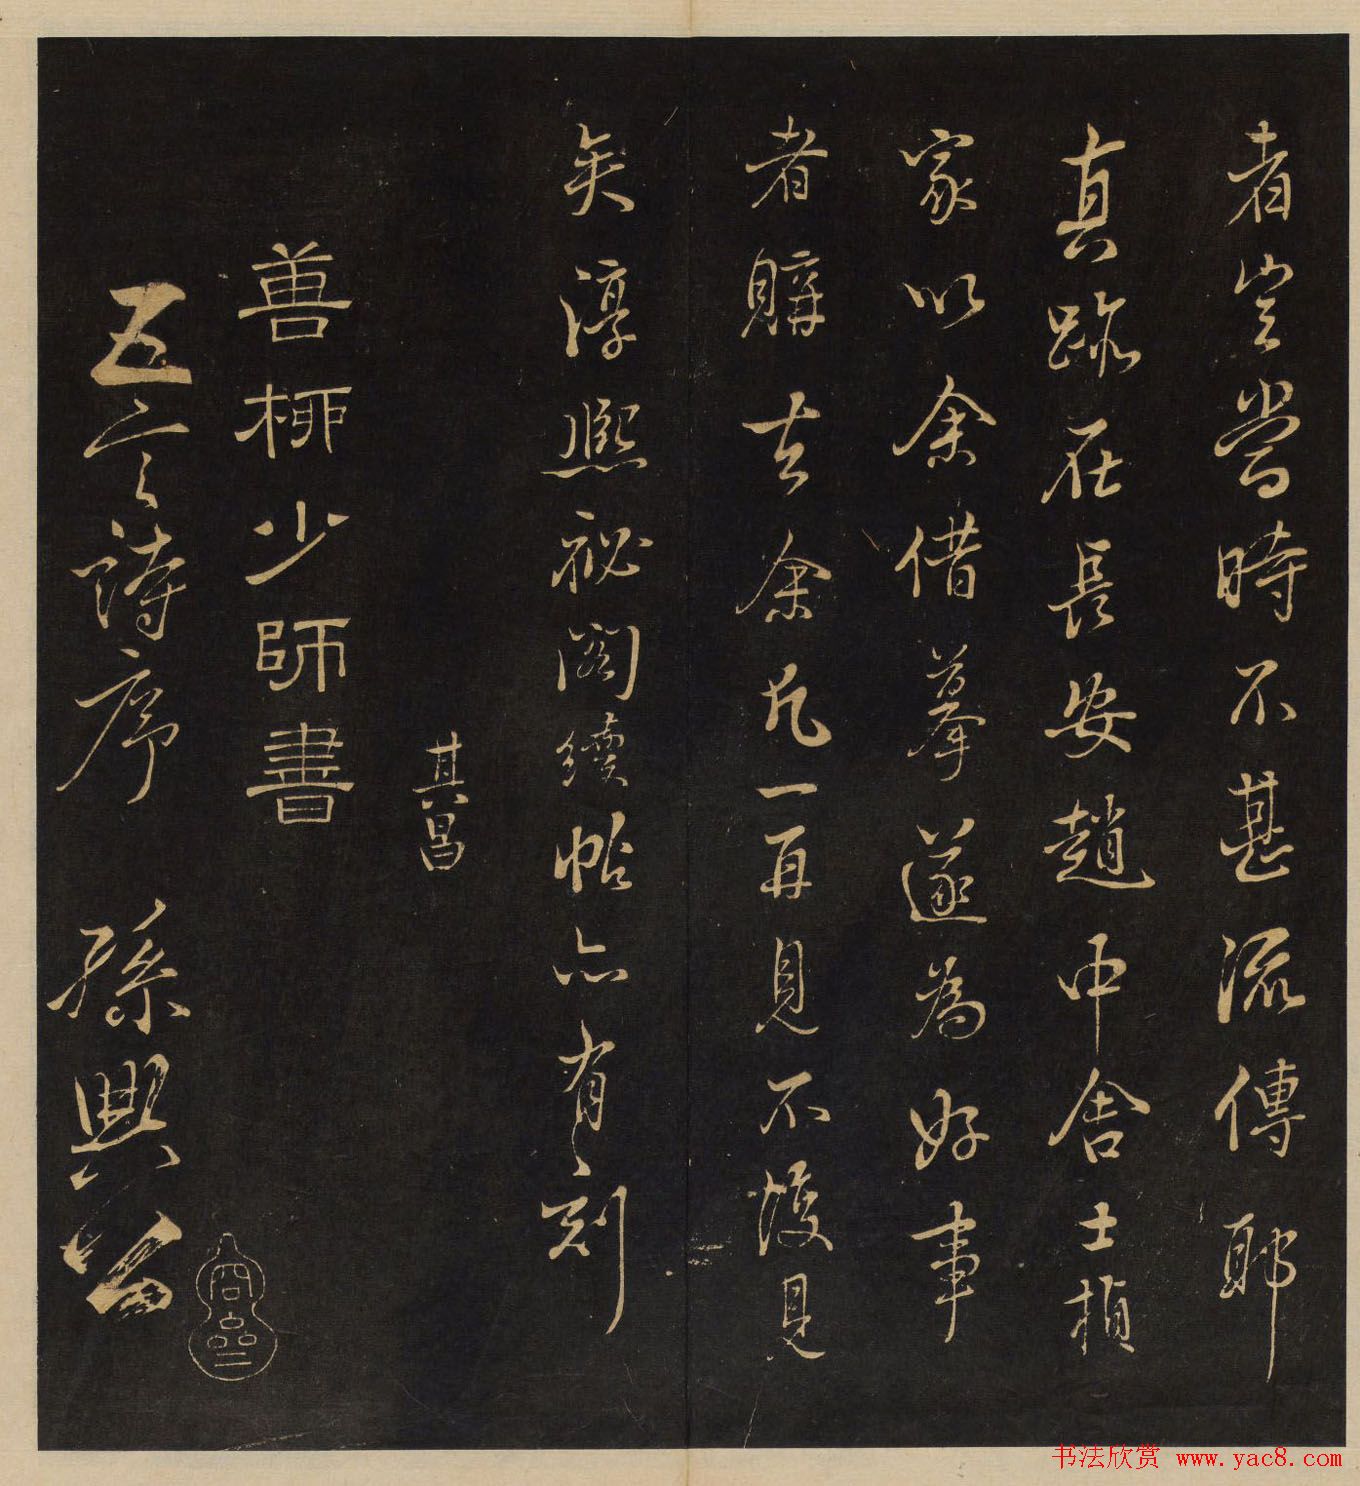 者豈當時不甚流傳耶
真跡在長安趙中舍士楨
家以余借摹遂為好事
者購去余凡一再見不復見
矣淳熙祕閣續帖亦有刻
其昌
善柳少師書
五言詩序 孫興公
书法欣赏 www.yac8.com